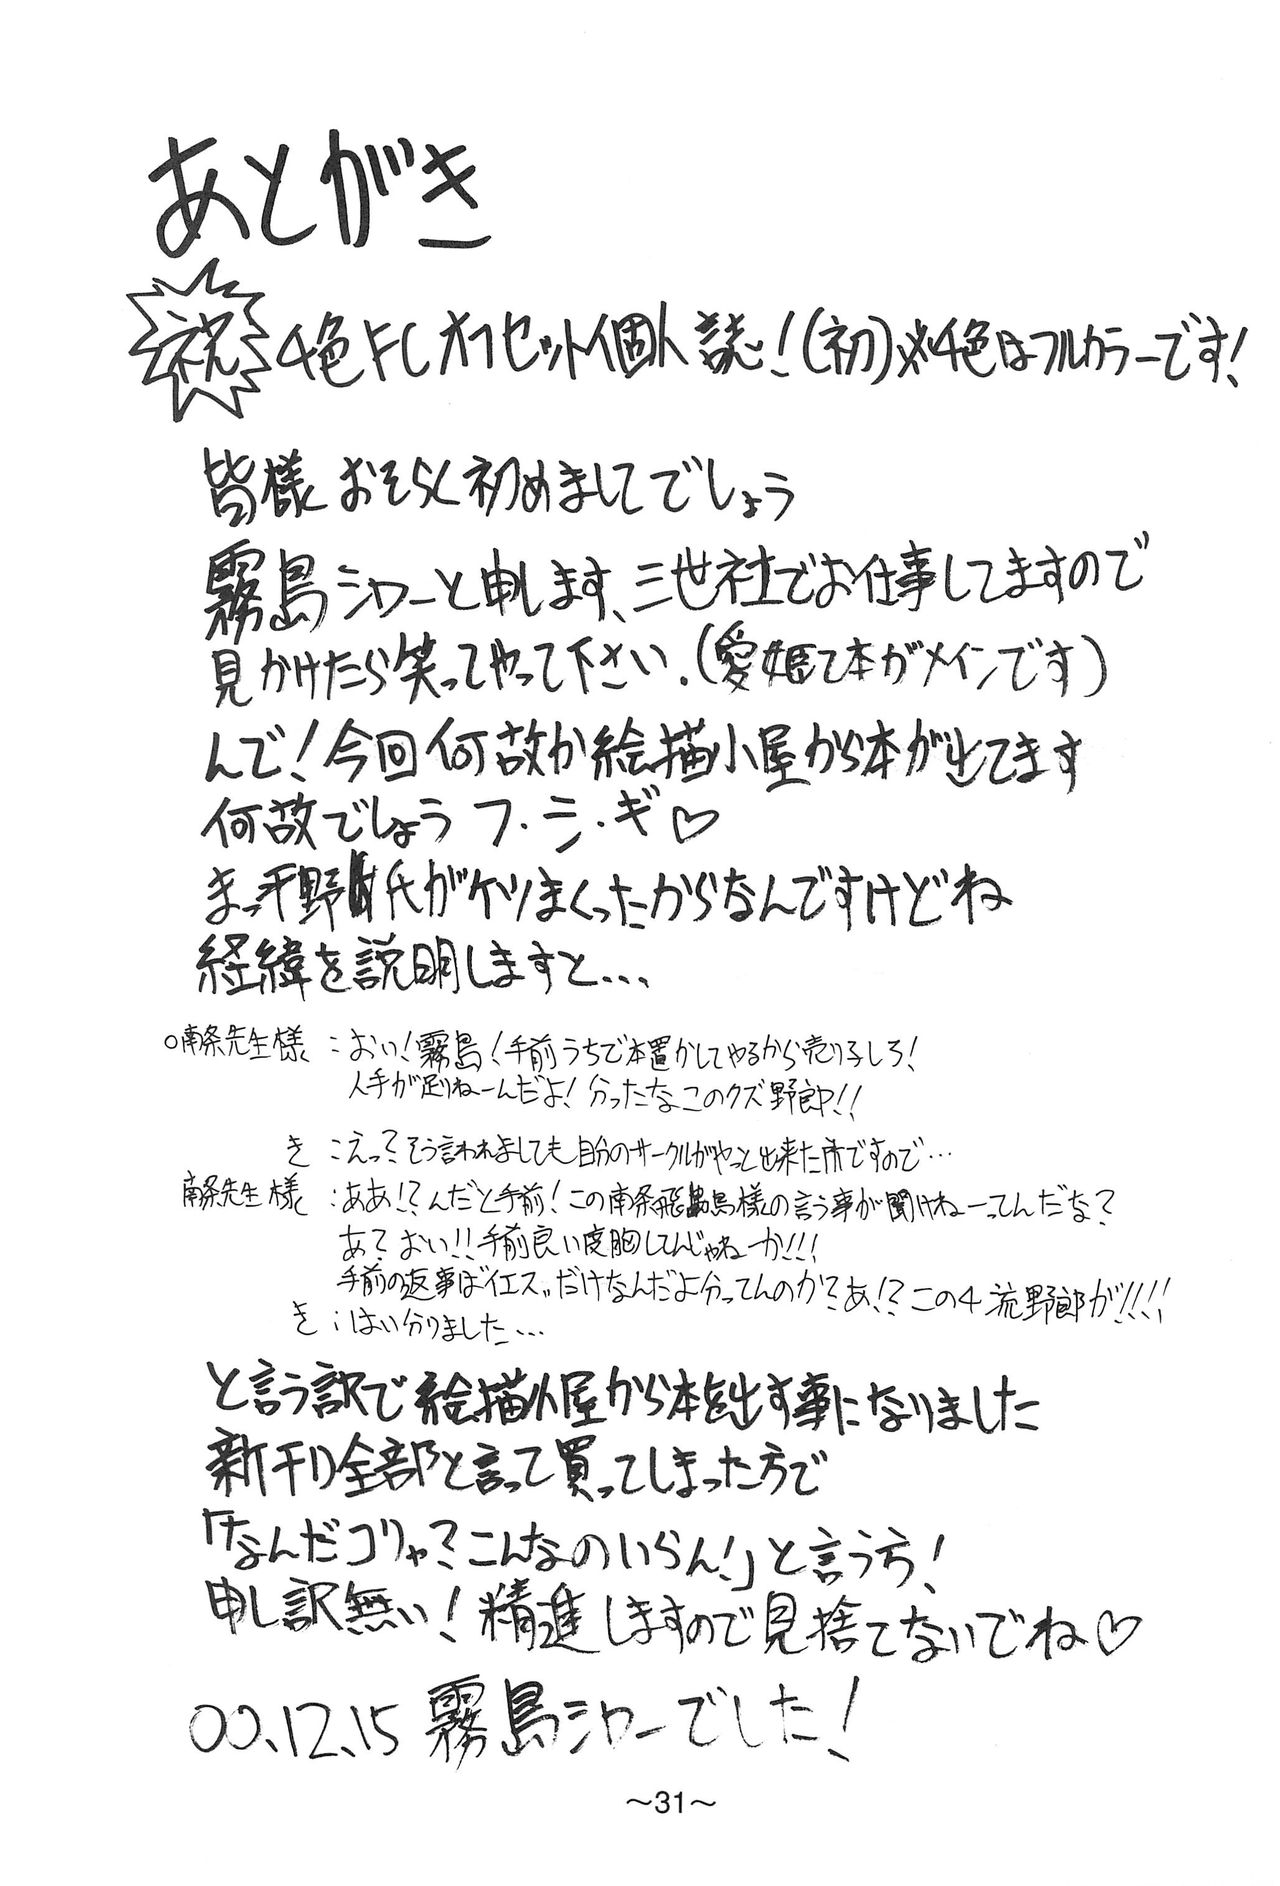 あとがき
祝 4色FCオフセット個人誌!(初)※4色はフルカラーです!
皆様おそらく初めましてでしょう
霧島シャーと申します、三世社でお仕事してますので
見かけたら笑ってやって下さい.(愛姫て本がメインです)
んで!今回何故か絵描小屋から本が出てます
何故でしょうフ・シ・ギ♡
まっ平野氏がケツまくったからなんですけどね
経緯を説明しますと...
○南条先生様:おい!霧島!手前うちで本置かしてやるから売り子しろ!
人手が足りねーんだよ!分ったなこのクズ野郎!!
き:えっ?そう言われましても自分のサークルがやっと出来た所ですので…
南条先生様:ああ!?んだと手前!この南条飛鳥様の言う事が聞けねーってんだな?
あ?おい!!手前良い度胸してんじゃねーか!!!
手前の返事は"イエス"だけなんだよ分ってんのか?あ!?この4流野郎が!!!!
き:はい分りました…
と言う訳で絵描小屋から本を出す事になりました
新刊全部と言って買ってしまった方で
「なんだコリャ?こんなのいらん!」と言う方!
申し訳無い!精進しますので見捨てないでね♡
00.12.15霧島シャーでした!
〜31〜